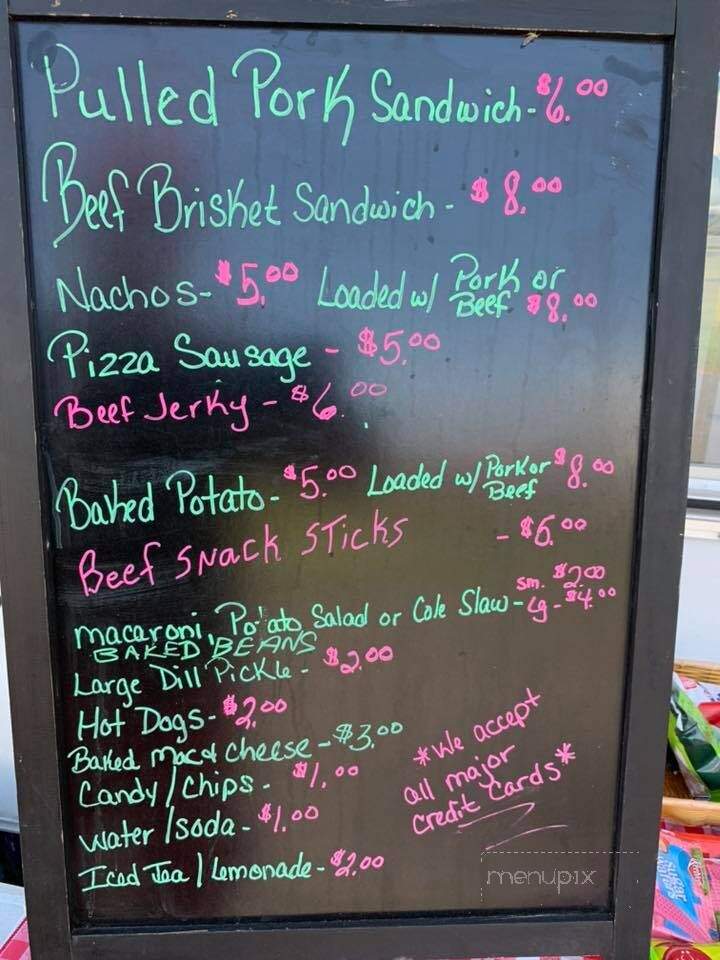 Pulled Pork Sandwich - $6.00
Beef Brisket Sandwich - $8.00
Nachos - $5.00 Loaded w/ Pork or Beef $8.00
Pizza Sausage - $5.00
Beef Jerky - $6.00
Baked Potato - $5.00 Loaded w/ Pork or Beef $8.00
Beef SNACK STicks - $6.00
macaroni, Potato Salad or Cole Slaw - sm. $2.00 lg - $4.00
BAKED BEANS
Large Dill Pickle - $2.00
Hot Dogs - $2.00
Baked Mac & cheese - $3.00
Candy / Chips - $1.00
water / soda - $1.00
Iced Tea / Lemonade - $2.00
*We accept
all major
credit cards*
menupix